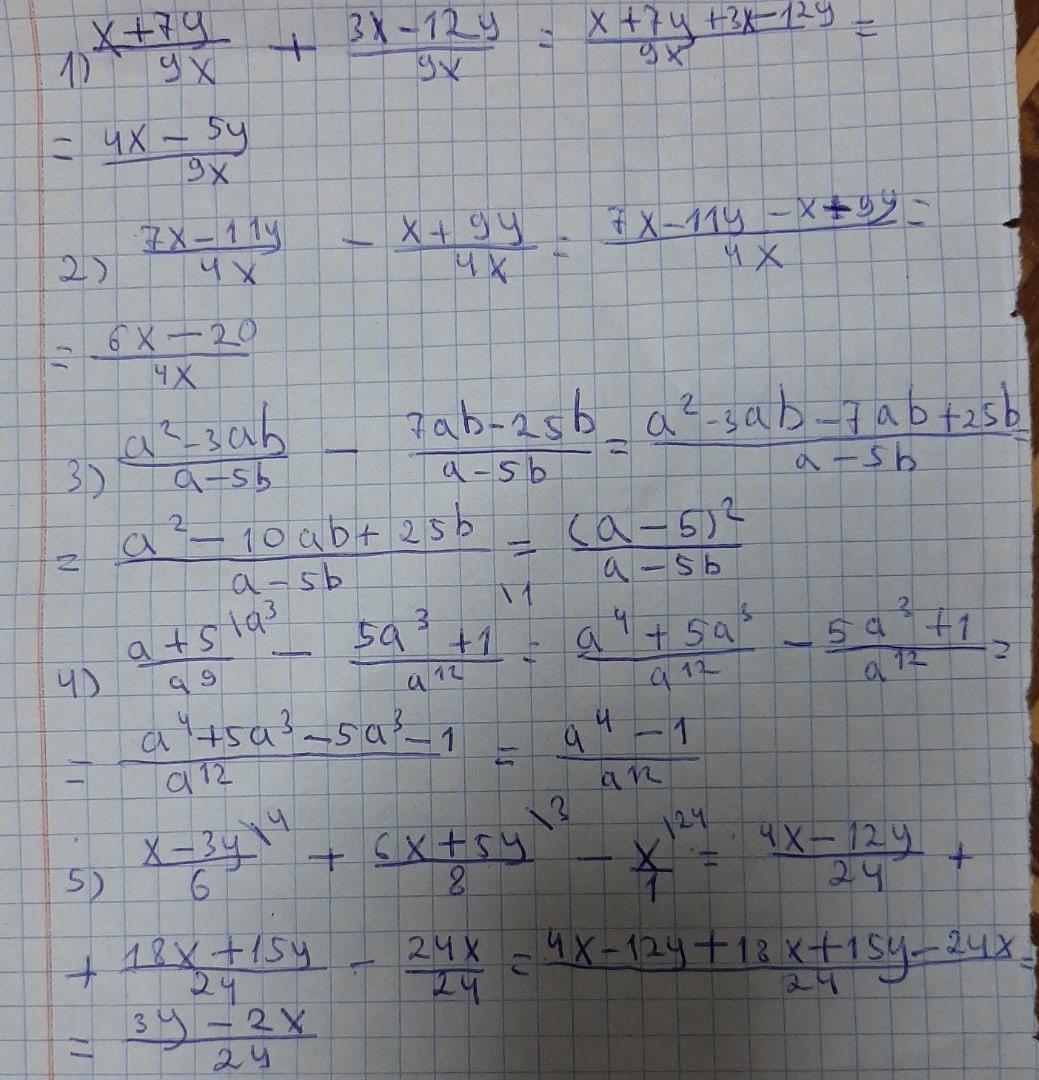 1) (x+7y)/(9x) + (3x-12y)/(9x) = (x+7y+3x-12y)/(9x) =
= (4x-5y)/(9x)
2) (7x-11y)/(4x) - (x+9y)/(4x) = (7x-11y-x-9y)/(4x) =
= (6x-20)/(4x)
3) (a²-3ab)/(a-5b) - (7ab-25b)/(a-5b) = (a²-3ab-7ab+25b)/(a-5b) =
= (a²-10ab+25b)/(a-5b) = (a-5)²/(a-5b)
4) (a+5)/(a⁹) \a³ - (5a³+1)/(a¹²) \1 = (a⁴+5a³)/(a¹²) - (5a³+1)/(a¹²) =
= (a⁴+5a³-5a³-1)/(a¹²) = (a⁴-1)/(a¹²)
5) (x-3y)/6 \4 + (6x+5y)/8 \3 - x/1 \24 = (4x-12y)/24 +
+ (18x+15y)/24 - (24x)/24 = (4x-12y+18x+15y-24x)/24 =
= (3y-2x)/24